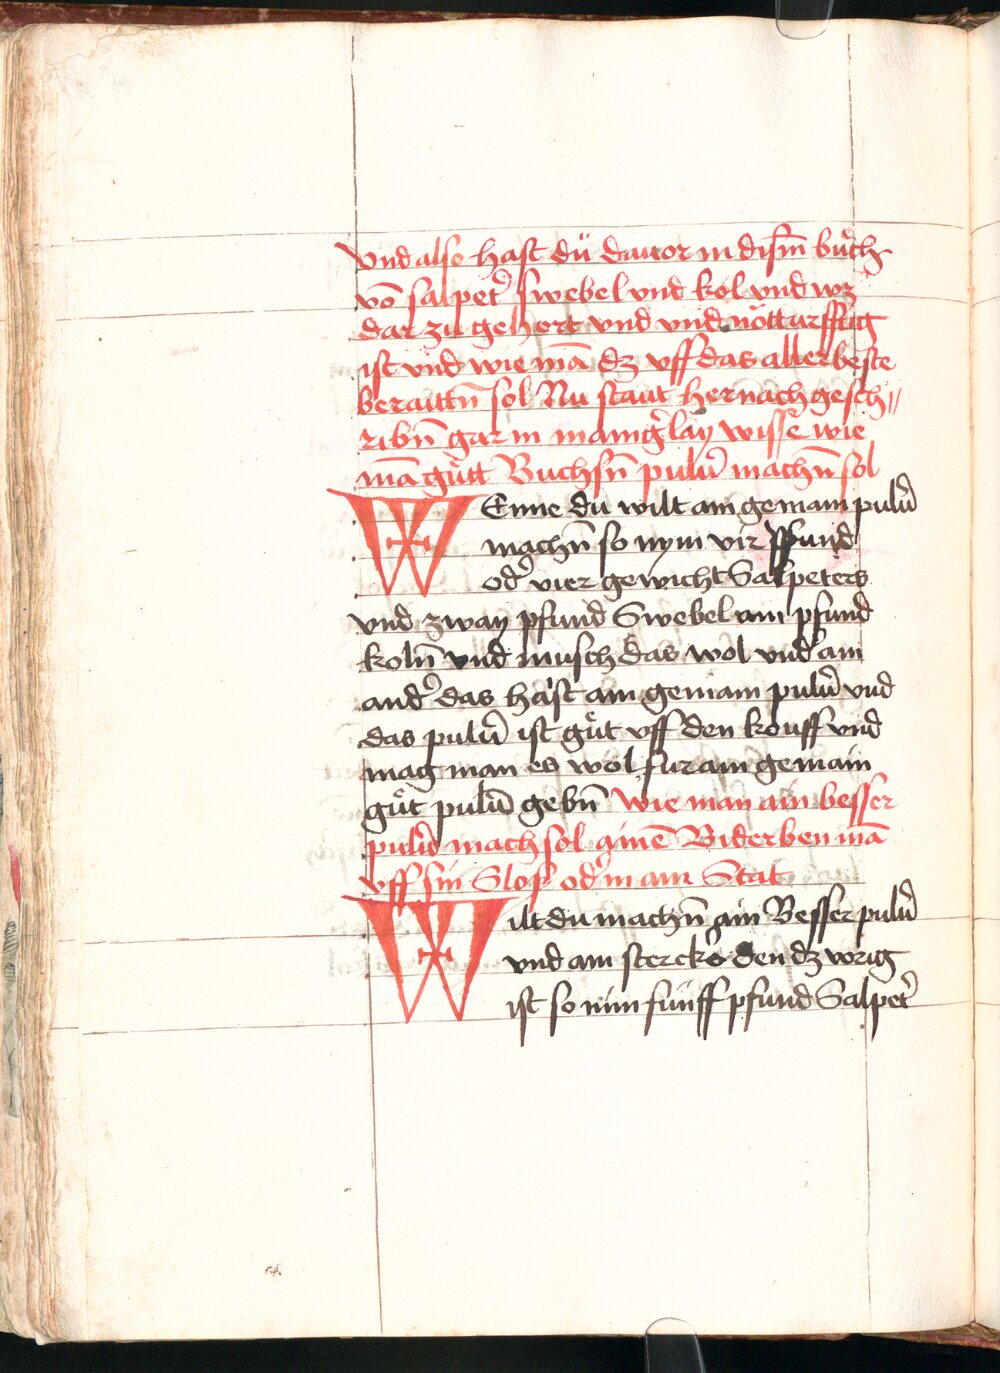 Vnd also hast du dauor in disem̄ bu̇ch
vō salpet̛ swebel vnd kol vnd wz
dar zu gehort vnd vnd notturfftig
ist vnd wie mā dz vff das allerbeste
beraittn̄ sol Nu staut hernach gesch //
ribn̄ gar in mang̛lay wisse wie
mā gu̇tt Buchsn̄ pulư machn̄ sol
WEnne du wilt ain gemain pulư
machn̄ so nym vir pfund
od̛ vier gewicht Salpeters
vnd zway pfund Swebel ain pfund
koln̄ vnd musch das wol vnd̛ ain
and̛ das haist ain gemain pulư vnd
das pulư ist gu̇t vff den kouff vnd
mag man es wol fur ain gemain
gu̇t pulư gebn̄ wie man ain besser
pulư mach sol ainē Biderben mā
vff sin Slos od̛ in ain Stat
Wilt du machn̄ ain Besser pulư
vnd ain sterckơ den dz vorig
ist so nim fünff pfund Salpet̛